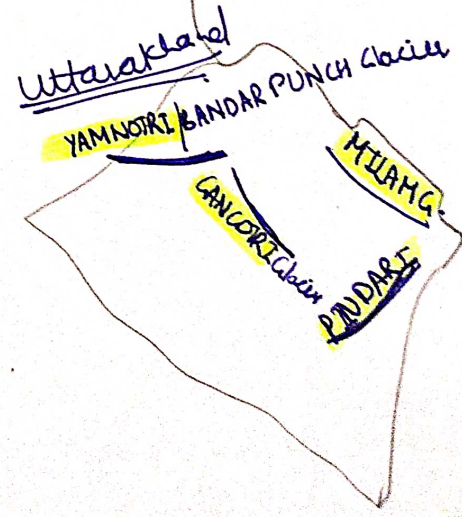 Uttarakhand
YAMNOTRI/BANDAR PUNCH Glacier
MILAM G.
GANGOTRI Glacier
PINDARI